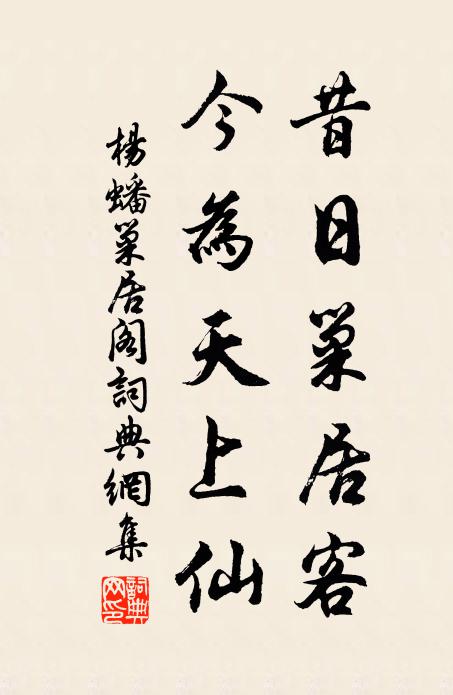 昔日巢居客
今為天上仙
楊蟠巢居閣詞典網集
詞典網印